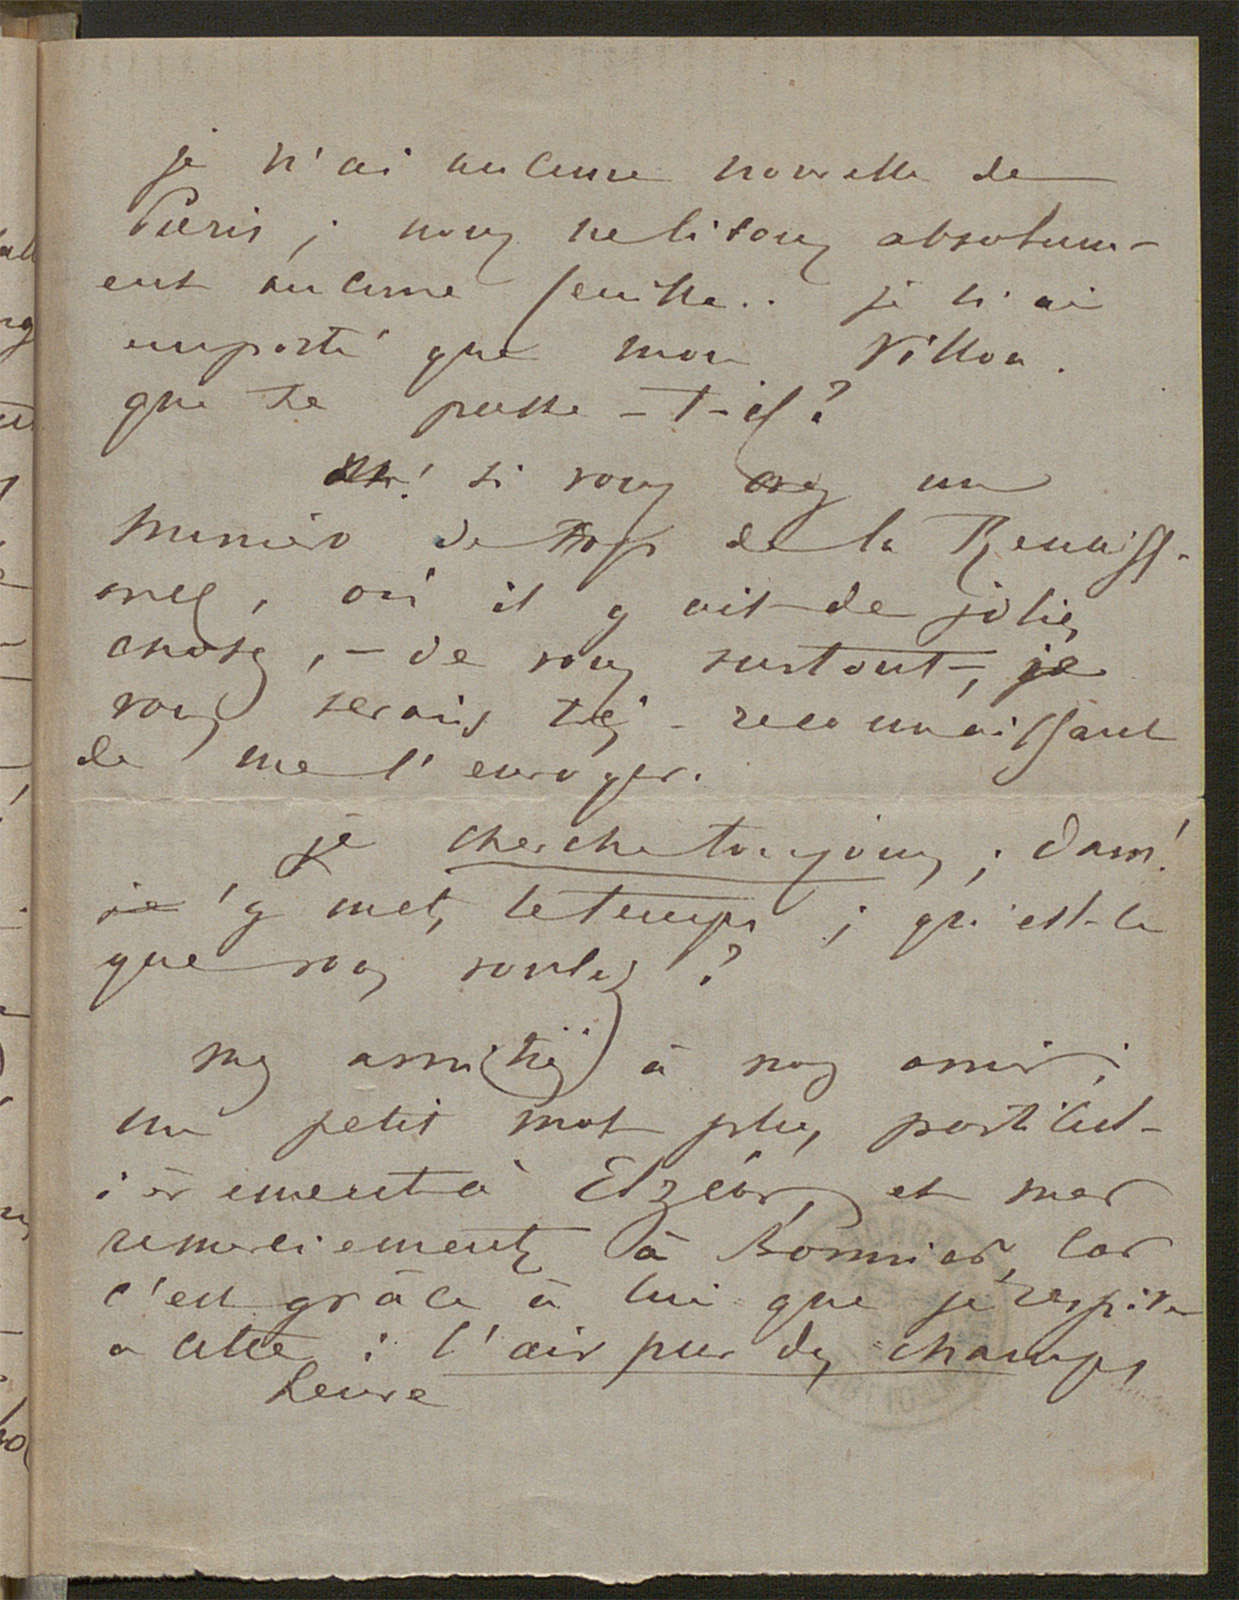 je n'ai aucune nouvelle de
Paris ; nous ne lisons absolum-
ent aucune feuille.. je n'ai
emporté que mon Villon.
que se passe-t-il ?
si vous avez un
numéro de trop de la Renaiss-
ance, où il y ait de jolies
choses, - de vous surtout -, je
vous serais très-reconnaissant
de me l'envoyer.
je cherche toujours ; dam !
j'y mets le temps ; qu'est-ce
que vous voulez ?
mes amitiés à nos amis ;
un petit mot plus particul-
ièrement à Elzéar, et mes
remerciements à Bonnier, car
c'est grâce à lui que je respire
a cette : l'air pur des champs
heure